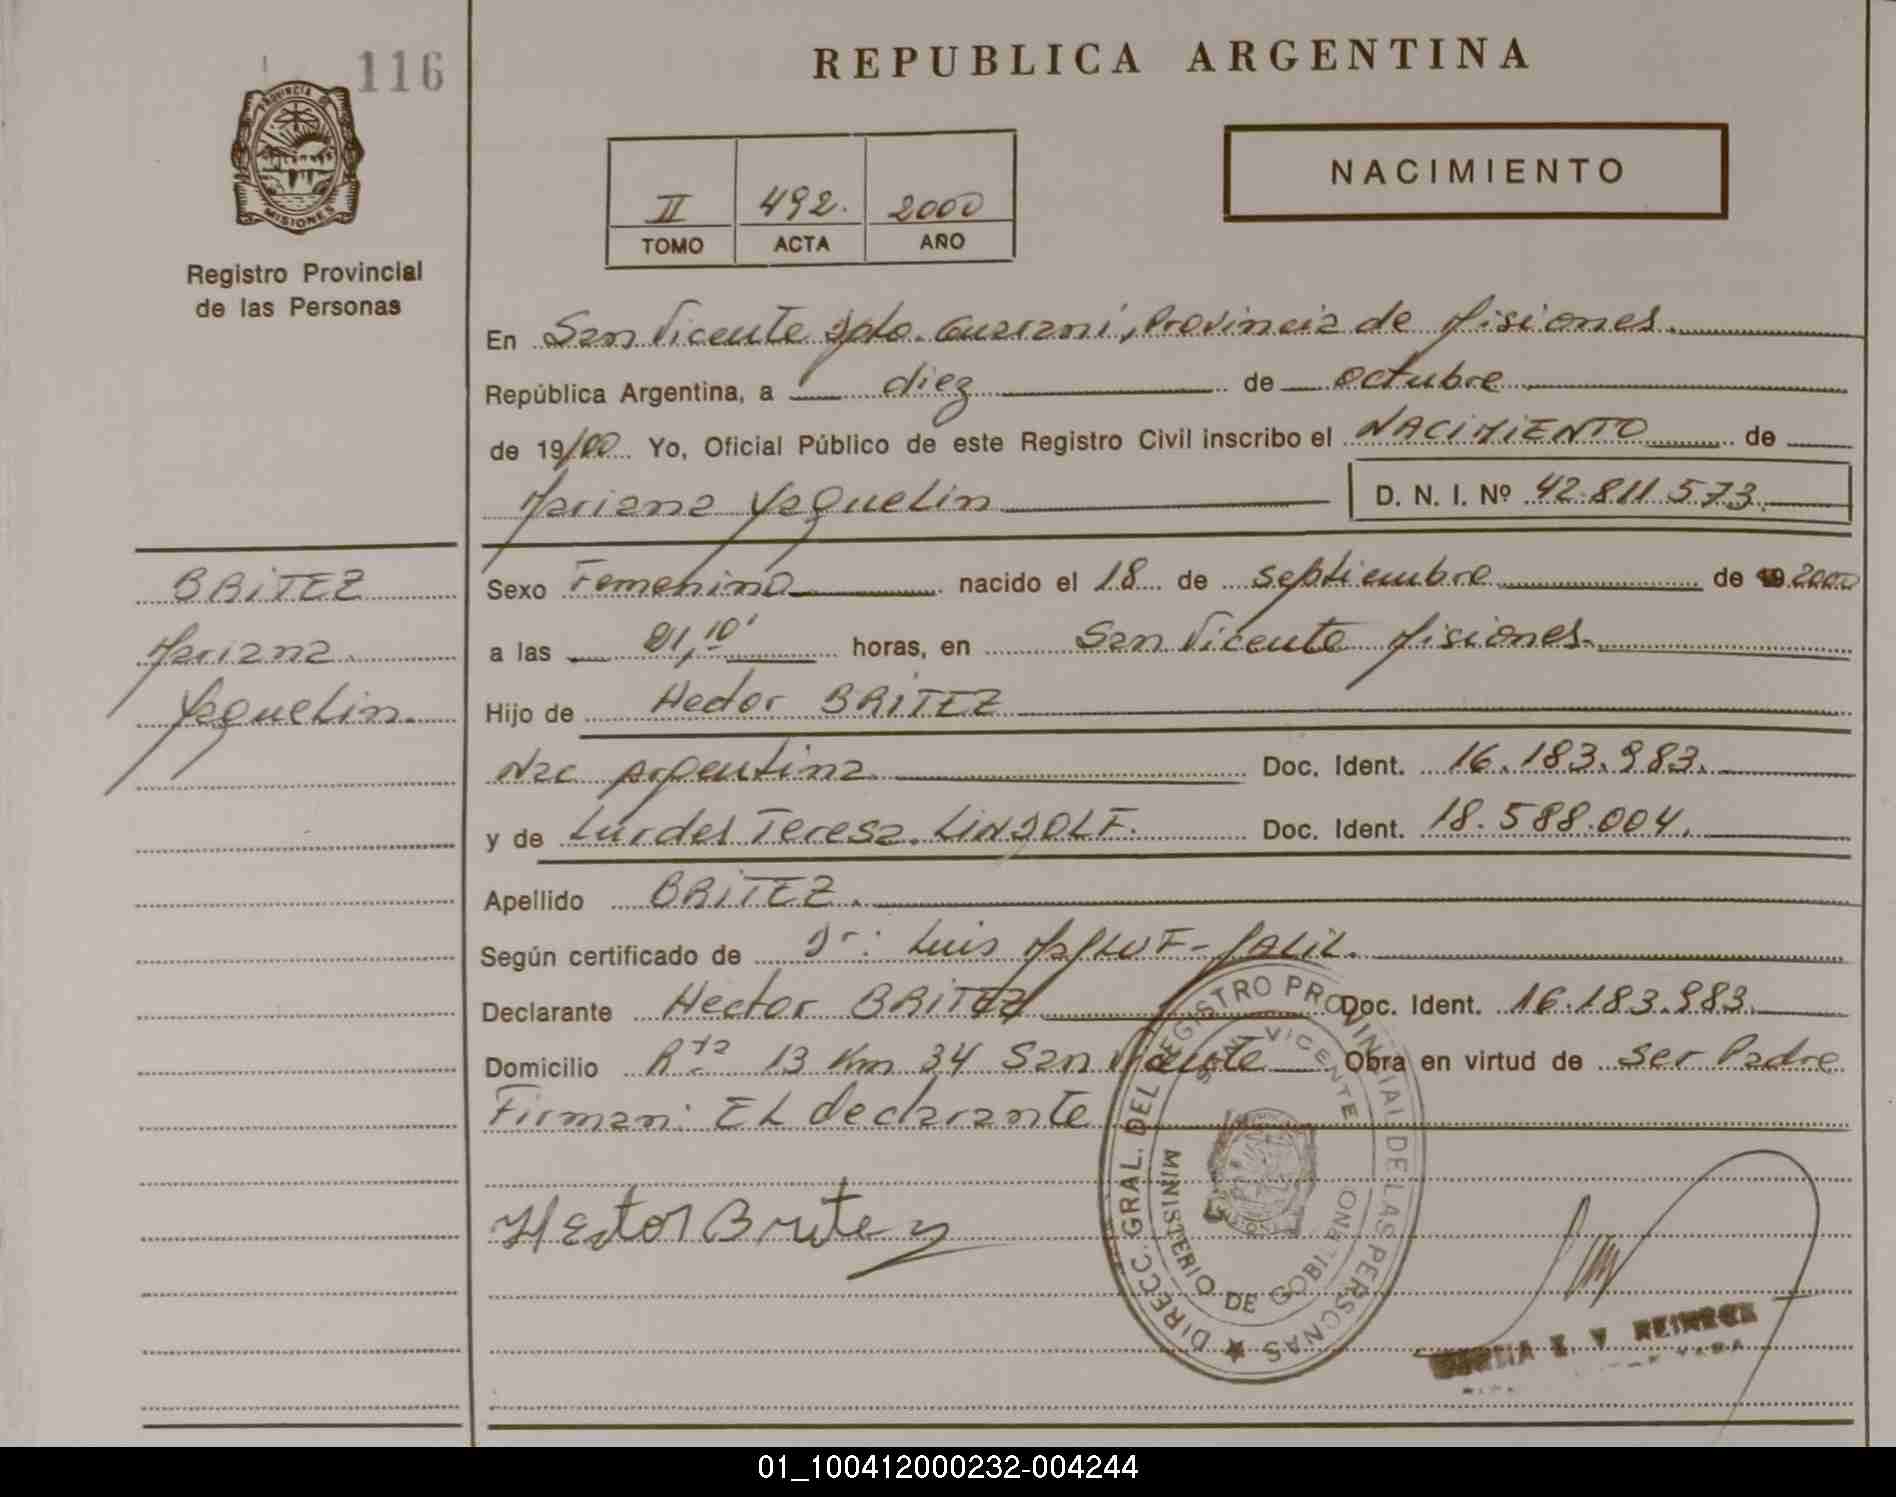 116
REPUBLICA ARGENTINA
PROVINCIA
MISIONES
Registro Provincial
de las Personas
II 492. 2000
TOMO ACTA AÑO
NACIMIENTO
En San Vicente Dpto. Guarani, Provincia de Misiones.
República Argentina, a diez de octubre
de 19/00 Yo, Oficial Público de este Registro Civil inscribo el NACIMIENTO de
Mariana Yaquelin D. N. I. Nº 42.811.573.
BRITEZ
Mariana
Yaquelin.
Sexo Femenino nacido el 18 de septiembre de 2000
a las 21,10' horas, en San Vicente Misiones.
Hijo de Hector BRITEZ
Nac Argentina Doc. Ident. 16.183.983.
y de Lurdes Teresa LINDOLF. Doc. Ident. 18.588.004.
Apellido BRITEZ.
Según certificado de Dr: Luis JALIL.
Declarante Hector BRITEZ Doc. Ident. 16.183.983.
Domicilio Rta 13 Km 34 San Vicente Obra en virtud de ser Padre
Firman: EL declarante
Hector Britez
DIRECC. GRAL. DEL REGISTRO PROVINCIAL DE LAS PERSONAS
SAN VICENTE
MINISTERIO DE GOBIERNO
01_100412000232-004244